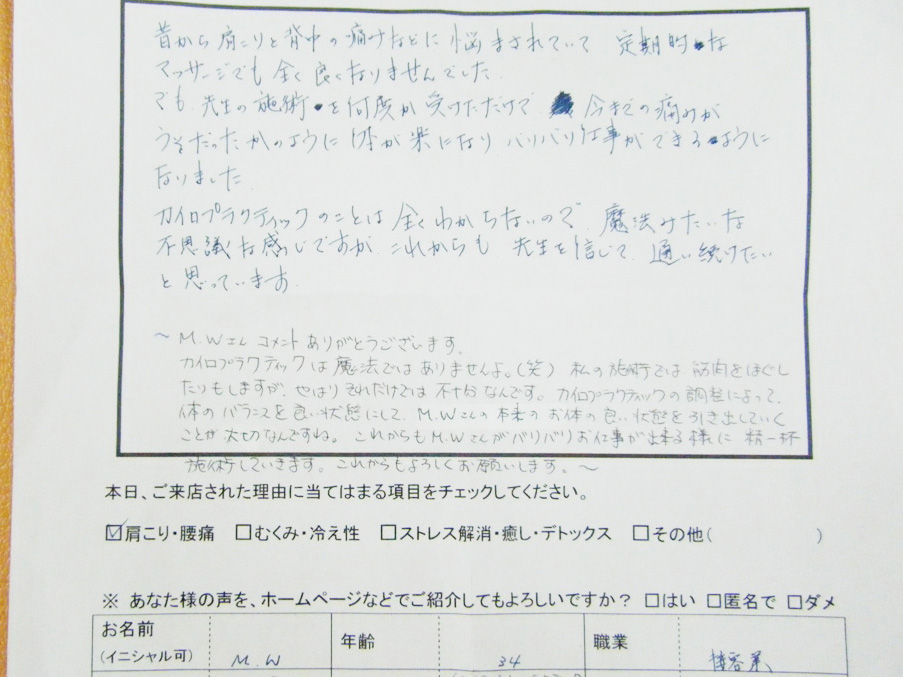 昔から肩こりと背中の痛みなどに悩まされていて 定期的な
マッサージでも全く良くなりませんでした。
でも、先生の施術を何度か受けただけで 今までの痛みが
うそだったかのように体が楽になりバリバリ仕事ができるように
なりました。
カイロプラクティックのことは全くわからないので、魔法みたいな
不思議な感じですが、これからも先生を信じて、通い続けたい
と思っています。
～M.Wさん コメントありがとうございます。
カイロプラクティックは魔法ではありませんよ。(笑) 私の施術では筋肉をほぐし
たりもしますが、やはりそれだけでは不十分なんです。カイロプラクティックの調整によって、
体のバランスを良い状態にして、M.Wさんの本来のお体の良い状態を引き出していく
ことが大切なんですね。これからもM.Wさんがバリバリお仕事が出来る様に精一杯
施術していきます。これからもよろしくお願いします。～
本日、ご来店された理由に当てはまる項目をチェックしてください。
☑肩こり・腰痛 □むくみ・冷え性 □ストレス解消・癒し・デトックス □その他( )
※ あなた様の声を、ホームページなどでご紹介してもよろしいですか？ □はい □匿名で □ダメ
お名前 (イニシャル可) M.W 年齢 34 職業